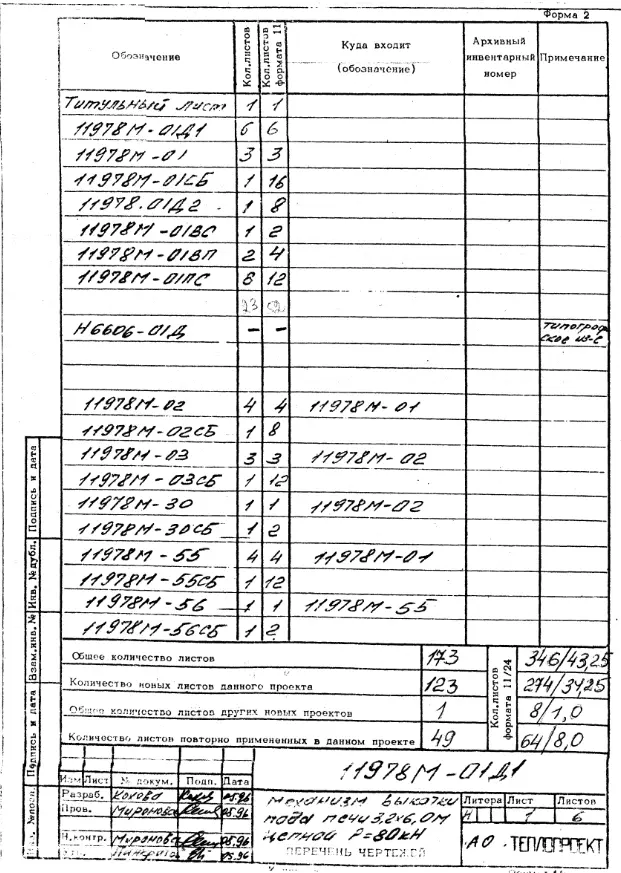 Форма 2
Обозначение Кол.листов Кол.листов формата 11 Куда входит (обозначение) Архивный инвентарный номер Примечание
Титульный лист 1 1
11978М-01Д1 6 6
11978М-01 3 3
11978М-01СБ 1 16
11978.01Д2 1 8
11978М-01ВС 1 2
11978М-01ВП 2 4
11978М-01ПС 8 12
23
Н6606-01Д — —
11978М-02 4 4 11978М-01
11978М-02СБ 1 8
11978М-03 3 3 11978М-02
11978М-03СБ 1 12
11978М-30 1 1 11978М-02
11978М-30СБ 1 2
11978М-55 4 4 11978М-01
11978М-55СБ 1 12
11978М-56 1 1 11978М-55
11978М-56СБ 1 2
Подпись и дата
Инв. № дубл.
Взам.инв. №
Подпись и дата
Общее количество листов 173
Количество новых листов данного проекта 123
Общее количество листов других новых проектов 1
Количество листов повторно примененных в данном проекте 49
Кол.листов формата 11/24
346/43,25
274/34,25
8/1,0
64/8,0
11978М-01Д1
Изм Лист № докум. Подп. Дата
Разраб. 05.96
Пров. Миронова 05.96
Н.контр. Миронова 05.96
05.96
Механизм выкатки
пода печи 3,2х6,0м
цепной Р=80кН
ПЕРЕЧЕНЬ ЧЕРТЕЖЕЙ
Литера Лист Листов
И 1 6
АО ТЕПЛОПРОЕКТ